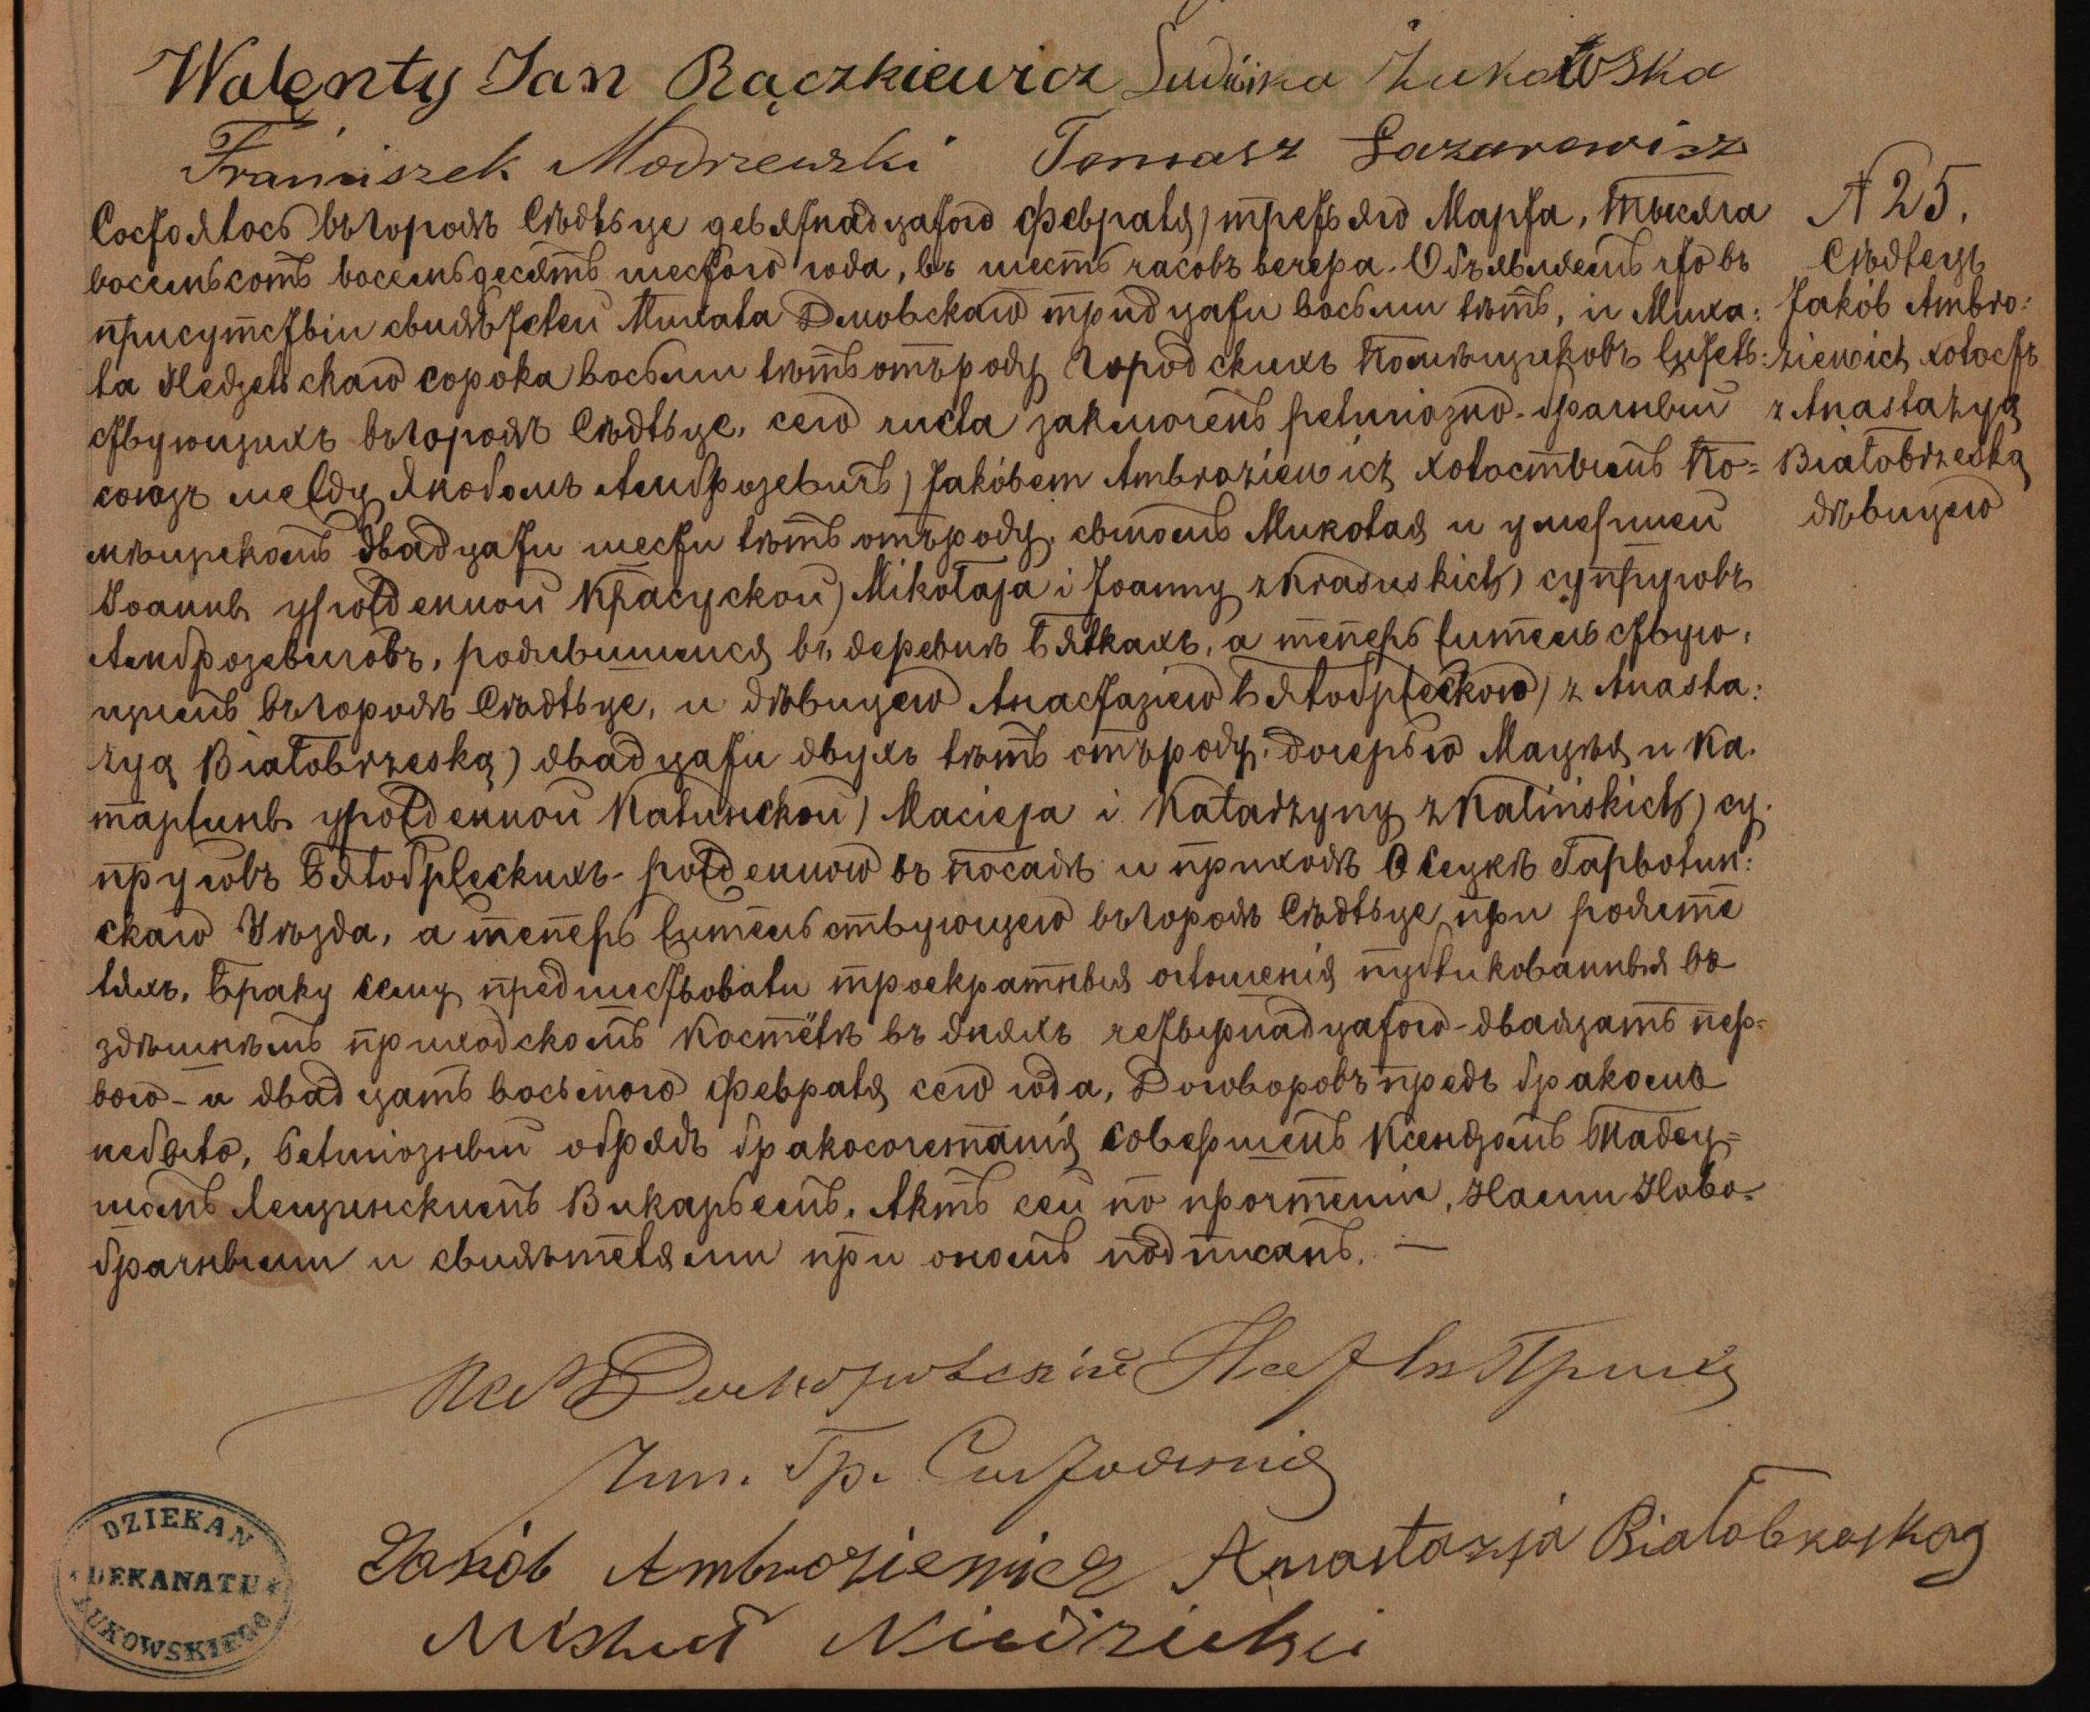 Walenty Jan Rączkiewicz Ludwika Żukowska
Franciszek Modrzewski Tomasz Lazarewisz
№ 25.
Сѣдлецъ
Jakób Ambro:
ziewicz холостъ
z Anastazyą
Białobrzeską
дѣвицею
Состоялось въ городѣ Сѣдльце девятнадцатого Февраля) третьяго Марта, Тысяча
восемьсотъ восемьдесятъ шестого года, въ шесть часовъ вечера. Объявляемъ что въ
присутствіи свидѣтелей Михала Дмовскаго тридцати восьми лѣтъ, и Миха:
ла Недзельскаго сорока восьми лѣтъ отъ роду городскихъ Помѣщиковъ жител:
ствующихъ въ городѣ Сѣдльце, сего числа заключенъ религіозно-брачный
союзъ между Якобомъ Амброзевичъ) Jakóbem Ambroziewicz холостымъ По=
мѣщикомъ двадцати шести лѣтъ отъ роду, сыномъ Миколая и умершей
Іоанны урожденной Красуской) Mikołaja i Joanny z Krasuskich) супруговъ
Амброзевичовъ, родившимся въ деревнѣ Бялкахъ, а теперь жительствую,
щимъ въ городѣ Сѣдльце, и дѣвицею Анастазіею Бялобржескою) z Anasta:
zyą Białobrzeską) двадцати двухъ лѣтъ отъ роду, дочерью Мацѣя и Ка.
таржины урожденной Калинской) Macieja i Katarzyny z Kalińskich) су.
пруговъ Бялобржескихъ - рожденною въ посадѣ и приходѣ Осецкѣ Гарволин:
скаго Уѣзда, а теперь жительствующею въ городѣ Сѣдльце при родите
ляхъ, Браку сему предшествовали троекратныя оглошенія публикованныя въ
здѣшнѣмъ приходскомъ Костёлѣ въ дняхъ четырнадцатого - двадцать пер=
вого - и двадцать восьмого Февраля сего года, Договоровъ предъ бракомъ
небыло, Религіозный обрядъ бракосочетанія совершенъ Ксендзомъ Тадеу=
шомъ Лещинскимъ Викарьемъ. Актъ сей по прочтеніи, Нами Ново=
брачными и свидѣтелями при ономъ подписанъ. —
Чин. Гр. Состоянія
Jakób Ambroziewicz Anastazja Białobrzeska
Michał Niedzielski
DZIEKAN
DEKANATU
ŁUKOWSKIEGO